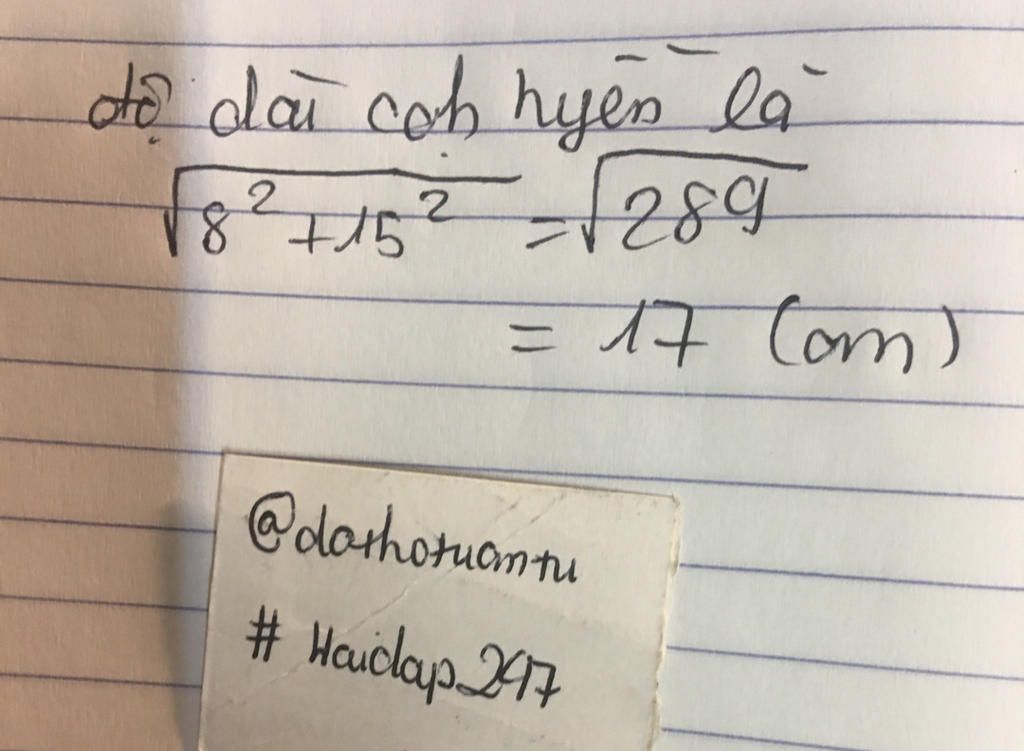 độ dài cạh huyền là
√8² + 15² = √289
= 17 (cm)
@dathotuantu
# Hoidap_247